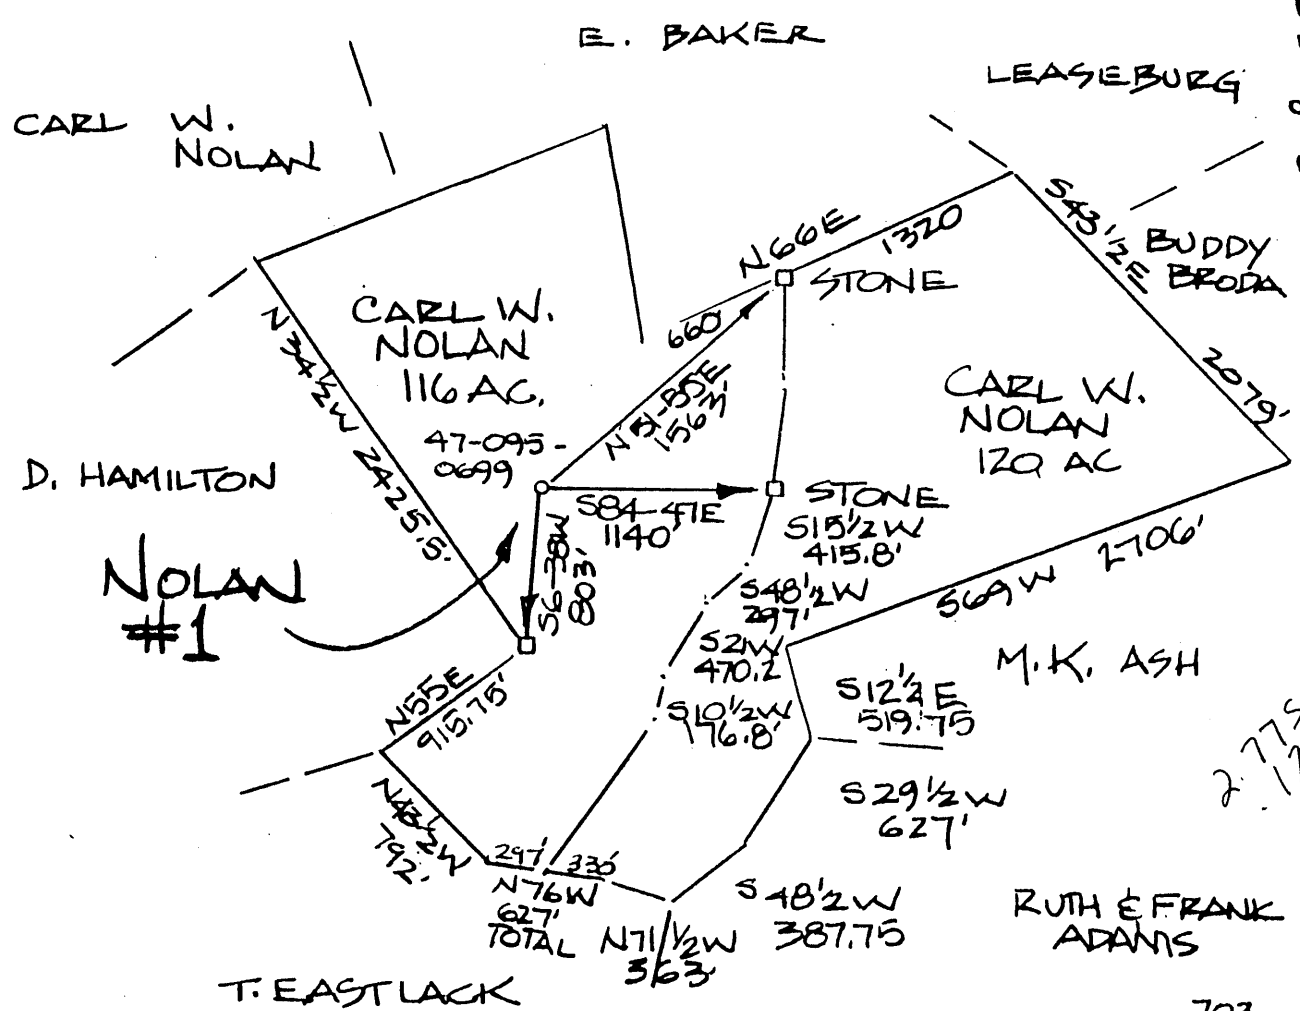 E. BAKER
LEASEBURG
CARL W.
NOLAN
N66E
1320
STONE
660'
S43 1/2 E
BUDDY
BRODA
2079'
CARL W.
NOLAN
116 AC.
N34 1/2 W 2425.5'
47-095-
0699
N 51-55E
1563'
CARL W.
NOLAN
120 AC
D. HAMILTON
S84-47E
1140'
STONE
S15 1/2 W
415.8'
NOLAN
#1
S6-38W
803'
S48 1/2 W
297'
S69W 2706'
S21W
470.2
M.K. ASH
N55E
915.75'
S10 1/2 W
176.8'
S12 1/2 E
519.75
2.775
S29 1/2 W
627'
792'
297' 330'
N76W
627'
TOTAL
N71 1/2 W
363'
S 48 1/2 W
387.75
RUTH & FRANK
ADAMS
T. EASTLACK
703